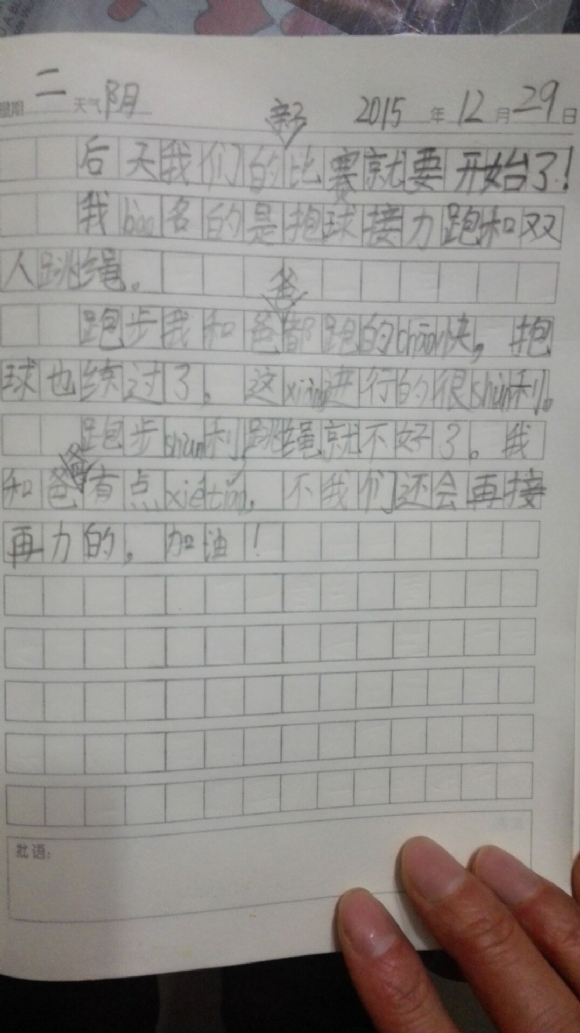 星期 二 天气 阴 2015 年 12 月 29 日
后天我们的亲子比赛就要开始了!
我bào名的是抱球接力跑和双
人跳绳。
跑步我和爸爸都跑的chāo快,抱
球也练过了。这xiàng进行的很shùn利。
跑步shùn利,跳绳就不好了。我
和爸爸有点xié tiáo,不我们还会再接
再力的,加油!
批语: